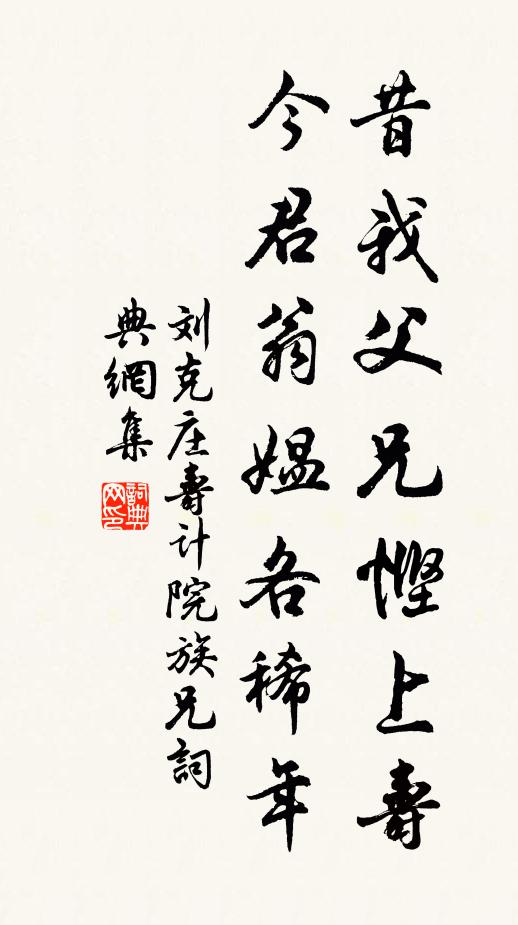 昔我父兄慳上壽
今君翁媼各稀年
刘克庄壽计院族兄詞
典網集
詞典网印